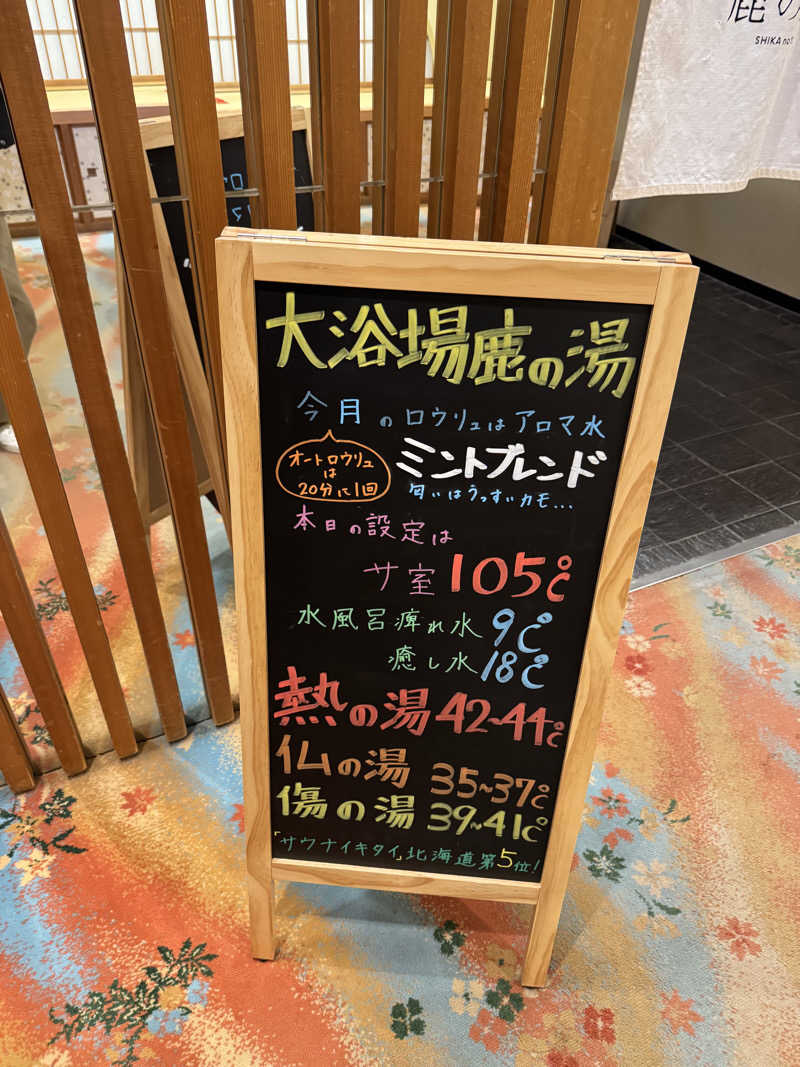 鹿の
SHIKA no
大浴場鹿の湯
今月のロウリュはアロマ水
オートロウリュ
は
20分に1回
ミントブレンド
匂いはうっすいカモ...
本日の設定は
サ室 105℃
水風呂痺れ水 9℃
癒し水 18℃
熱の湯 42~44℃
仏の湯 35~37℃
傷の湯 39~41℃
「サウナイキタイ」北海道第5位!